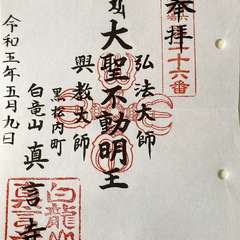 奉拝
十六番
大聖不動明王
弘法大師
興教大師
黒松内町
白竜山 真言寺
令和五年五月九日